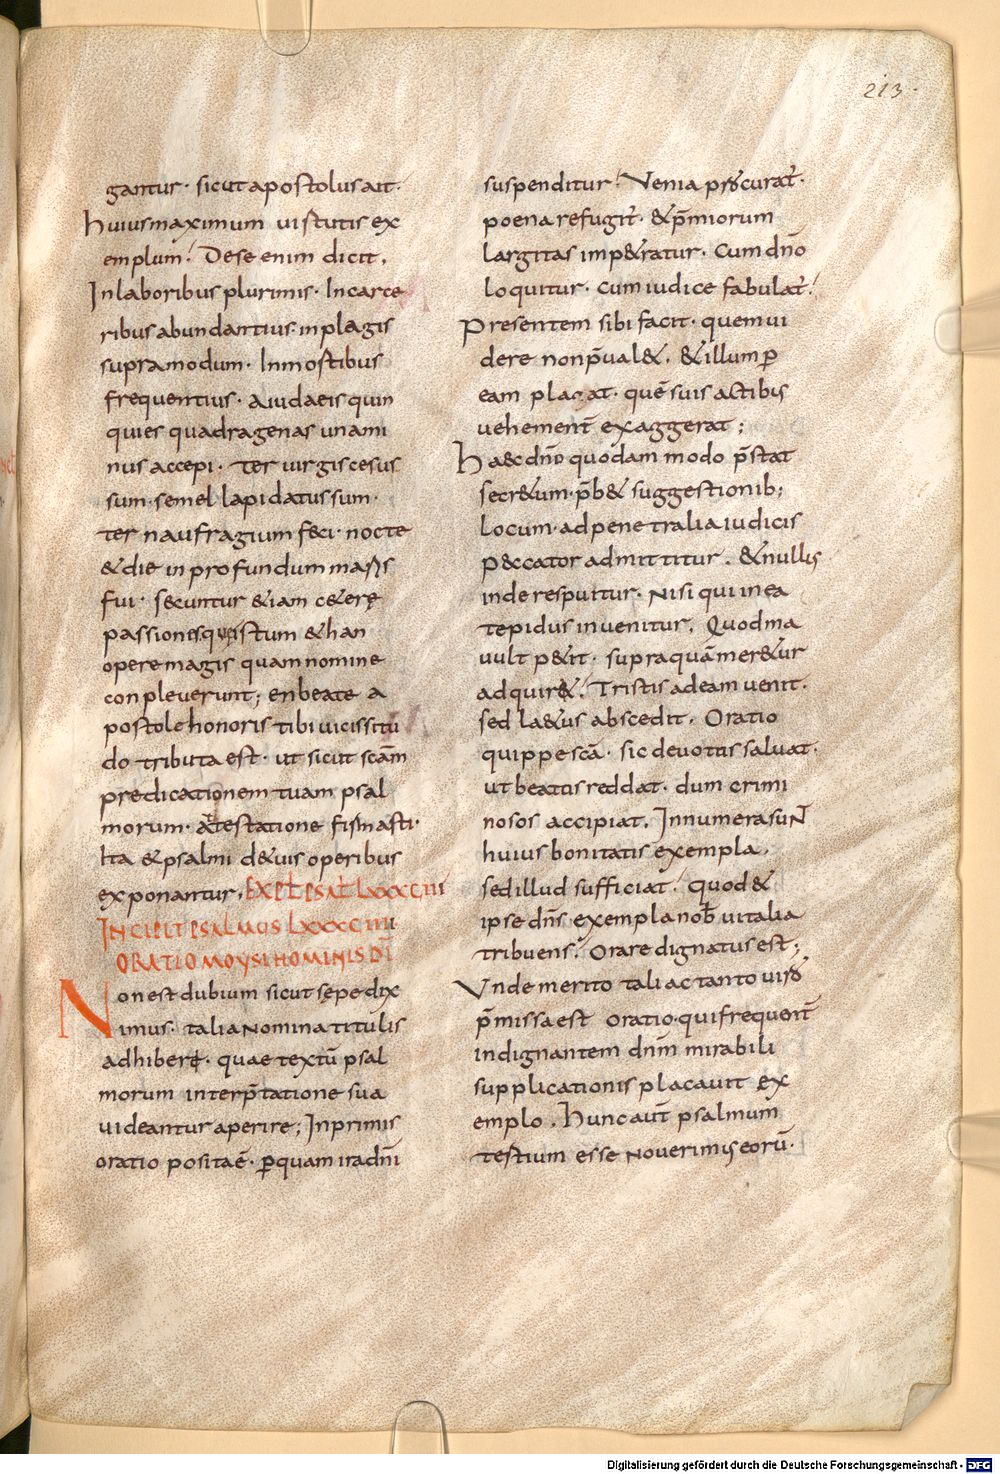 213.
gantur· sicut apostolus ait·
huius maximum uirtutis ex
emplum! Dese enim dicit.
In laboribus plurimis· Incarce
ribus abundantius· in plagis
supra modum· In mortibus
frequentius· a iudaeis quin
quies quadragenas unami
nus accepi· Ter uirgis cesus
sum· semel lapidatus sum·
ter naufragium feci· nocte
& die in profundum maris
fui· secuntur & iam c&erę
passiones istum & han
opere magis quam nomine
conpleuerunt; en beate a
postole honoris tibi uicissitu
do tributa est· ut sicut scām
predicationem tuam psal
morum· attestatione firmasti·
Ita & psalmi d&uis operibus
exponantur. EXPŁ PSAŁ LXXXCIII
INCIPIT PSALMUS LXXXCIIII
ORATIO MOYSI HOMINIS DĪ
Non est dubium sicut sępe dix
imus· talia Nomina titulis
adhiberę· quae textū psal
morum interp̄tatione sua
uideantur aperire; Inprimis
oratio posita ē· ꝑquam ira dn̄i
suspenditur! Venia procurat̄·
poena refugit̄· & p̄miorum
largitas imp&ratur· Cum dn̄o
loquitur· cum iudice fabulat̄!
Presentem sibi facit· quem ui
dere non p̄ual&. & illum ꝑ
eam placat· quē suis actibus
uehement̄ exaggerat;
haec dn̄o quodam modo p̄stat
secr&um· p̄b& suggestionib;
locum· ad penetralia iudicis
p&ccator admittitur. & nullis
inde respuitur· Nisi qui in ea
tepidus inuenitur. Quod ma
uult p&it· supra quā mer&ur
adquir&! Tristis ad eam uenit·
sed la&us abscedit. Oratio
quippe scā· sic deuotus saluat·
ut beatus reddat· dum crimi
nosos accipiat. Innumera suN̄
huius bonitatis exempla.
sed illud sufficiat! quod &
ipse dn̄s exempla nob̄ uitalia
tribuens! Orare dignatus est;
Vnde merito tali ac tanto uiro
p̄missa est oratio· qui frequent̄
indignantem dn̄m mirabili
supplicationis placauit ex
emplo. hunc aut̄ psalmum
testium esse Nouerimus eorū·
Digitalisierung gefördert durch die Deutsche Forschungsgemeinschaft - DFG